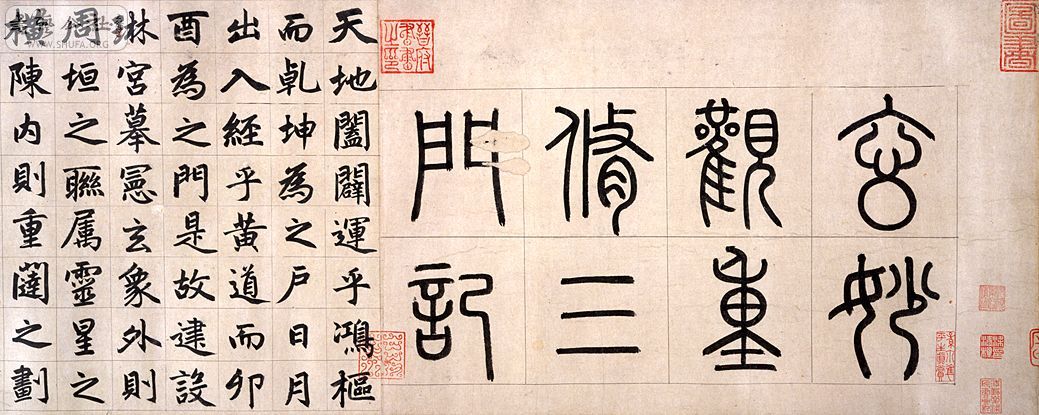 玄妙
觀重
脩三
門記
天地闔闢運乎鴻樞
而乹坤為之户日月
出入經乎黄道而卯
酉為之門是故建設
琳宮摹憲玄象外則
周垣之聯属靈星之
横陳内則重闥之劃
WWW.SHUFA.ORG